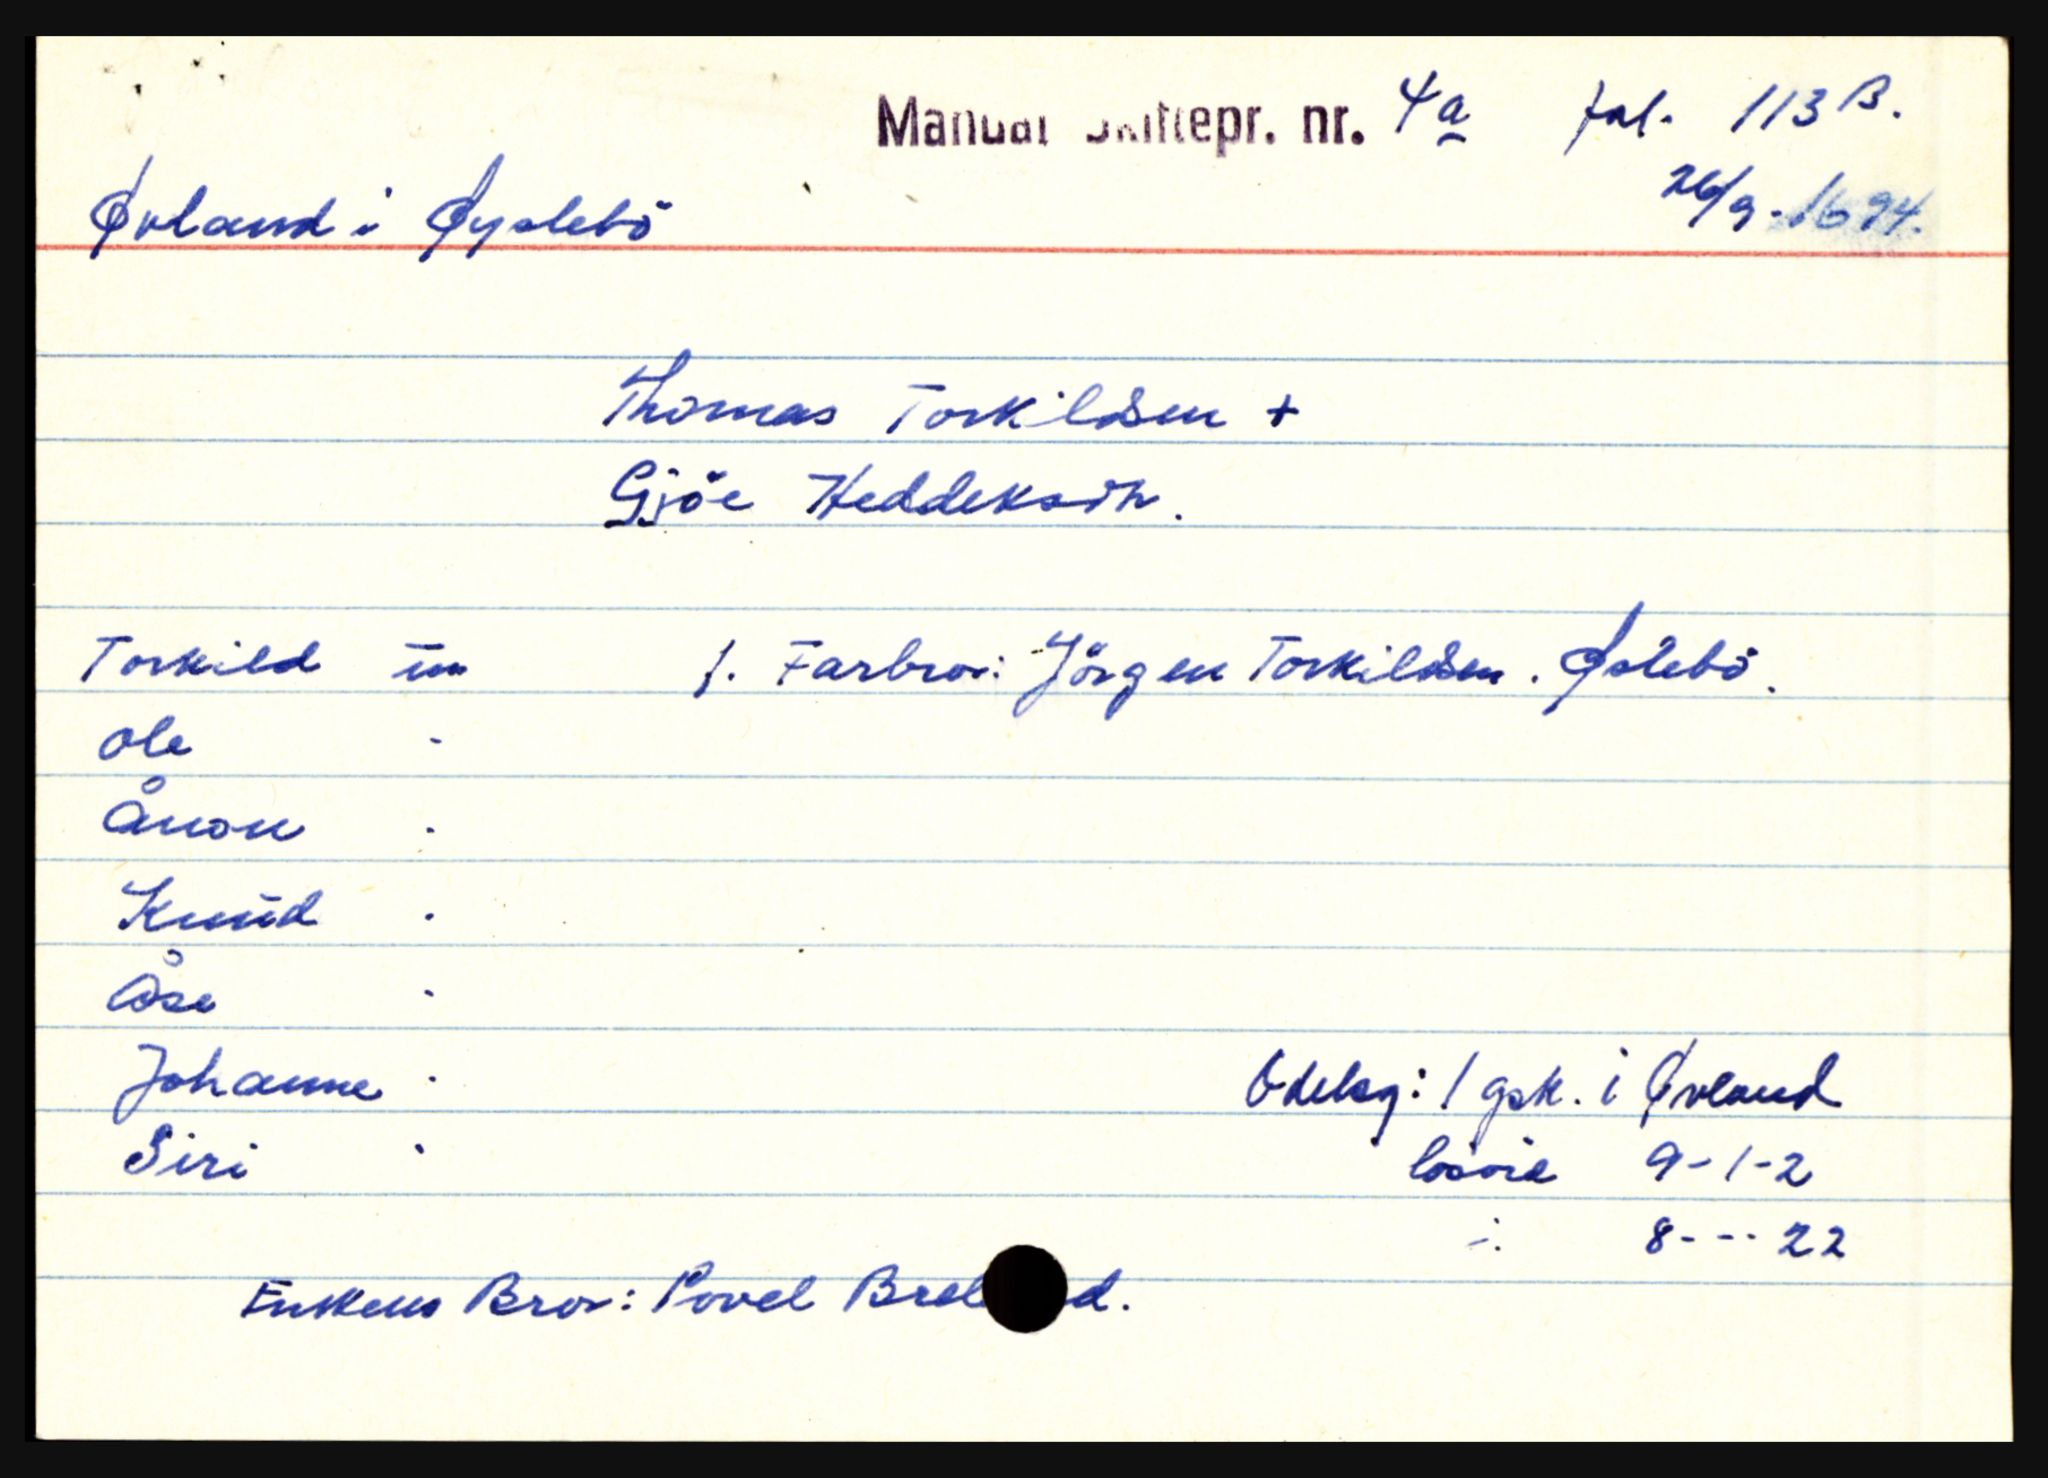 Mandal Skiftepr. nr. 4a fol. 113 B.
26/9-1694.
Øvland i Øyslebö
Thomas Torkildsen +
Gjöe Heddeksdtr.
Torkild um 1. Farbror: Jörgen Torkildsen. Øslebö.
Ole -
Ånon -
Knud -
Åse -
Johanne -
Siri -
Odelsg: 1 gsk. i Øvland
lösöre 9-1-2
-:- 8---22
Enkens Bror: Povel Brel d.